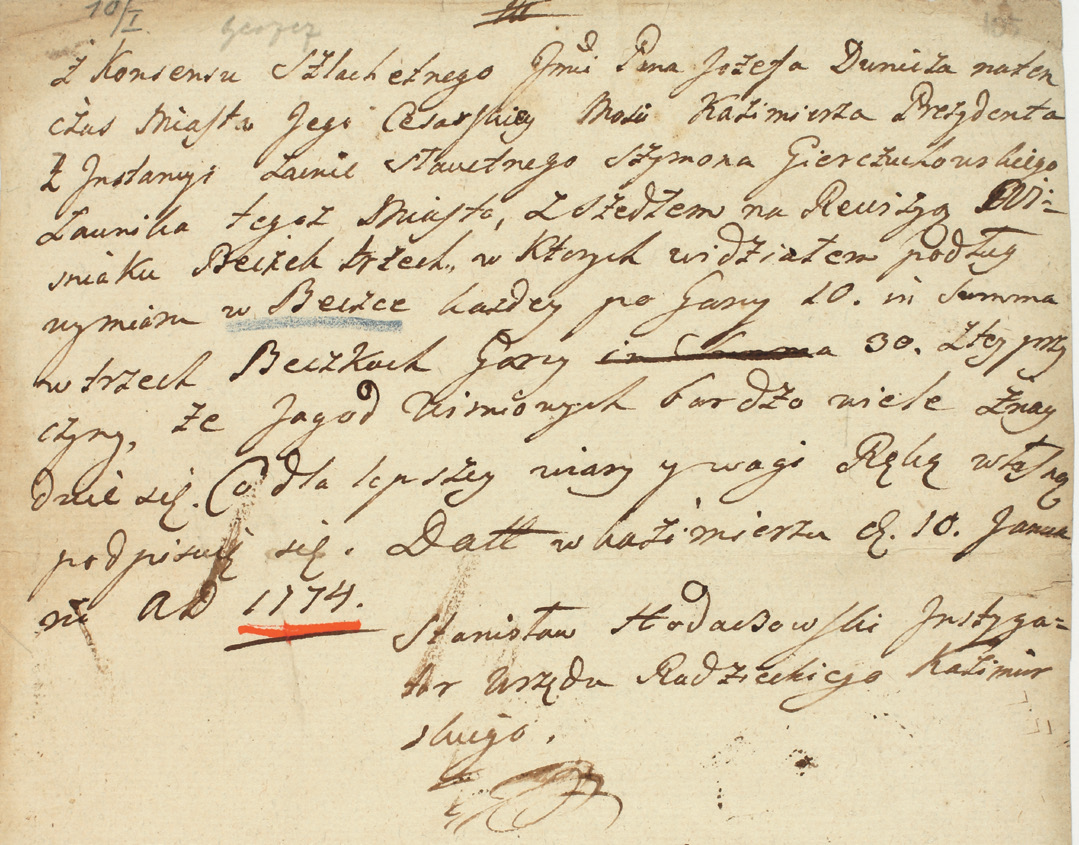 10/I
III
Z Konsensu Szlachetnego Jmci Pana Jozefa Dunicza naten
czas Miasta Jego Cesarskiey Mości Kazimierza Prezydenta
Z Instancyi Sławetnego Szymona Gierczuchowskiego
Ławnika tegoz Miasta, Zszedłem na Rewizyą Wi=
sniaku Beczek trzech, w ktorych widziałem podług
wymiaru w Beczce kazdey po Garcy 10. in Summa
w trzech Beczkach Garcy in Summa 30. z tey przy
czyny, ze Jagod Wisniowych bardzo wiele znay
duie się. Co dla lepszey wiary y wagi Ręką własną
podpisuię się. Datt w Kazimierzu d. 10. Janua
rii AD 1774.
Stanisław Hodakowski Instyga=
tor Urzędu Radzieckiego Kazimir
skiego.